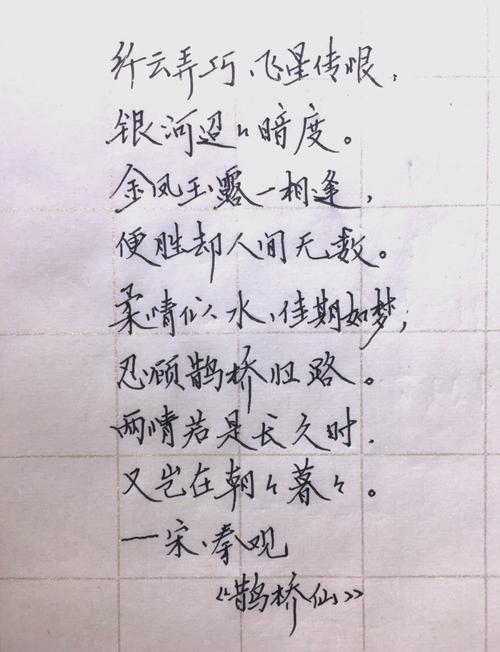 纤云弄巧、飞星传恨，
银河迢々暗度。
金风玉露一相逢，
便胜却人间无数。
柔情似水、佳期如梦，
忍顾鹊桥归路。
两情若是长久时，
又岂在朝々暮々。
一宋·秦观
《鹊桥仙》